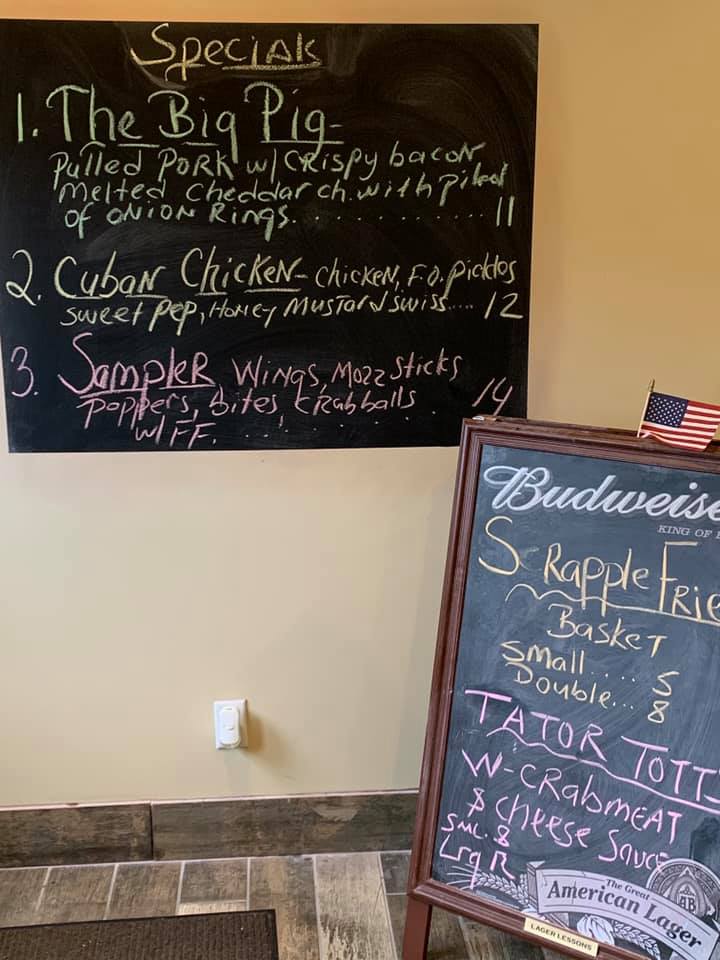 Specials
1. The Big Pig-
Pulled Pork w/ crispy bacon
melted cheddar ch. with piled
of onion Rings. . . . . . . . . . . . 11
2. Cuban Chicken- chicken, F.O. Pickles
sweet pep, Honey Mustard swiss.... 12
3. Sampler Wings, Mozz Sticks
poppers, bites & crab balls. . 14
w/ FF. . . . . .
Budweise
KING OF B
Scrapple Frie
Basket
Small.... 5
Double... 8
TATOR TOTTS
W-CRabmeat
$ Cheese Sauce
SML. 8
Lrg
The Great
American Lager
AB
LAGER LESSONS